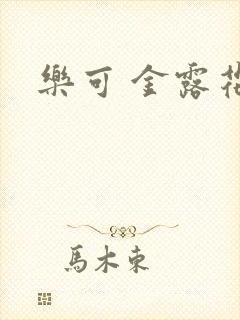 樂可 金露花
馬木東